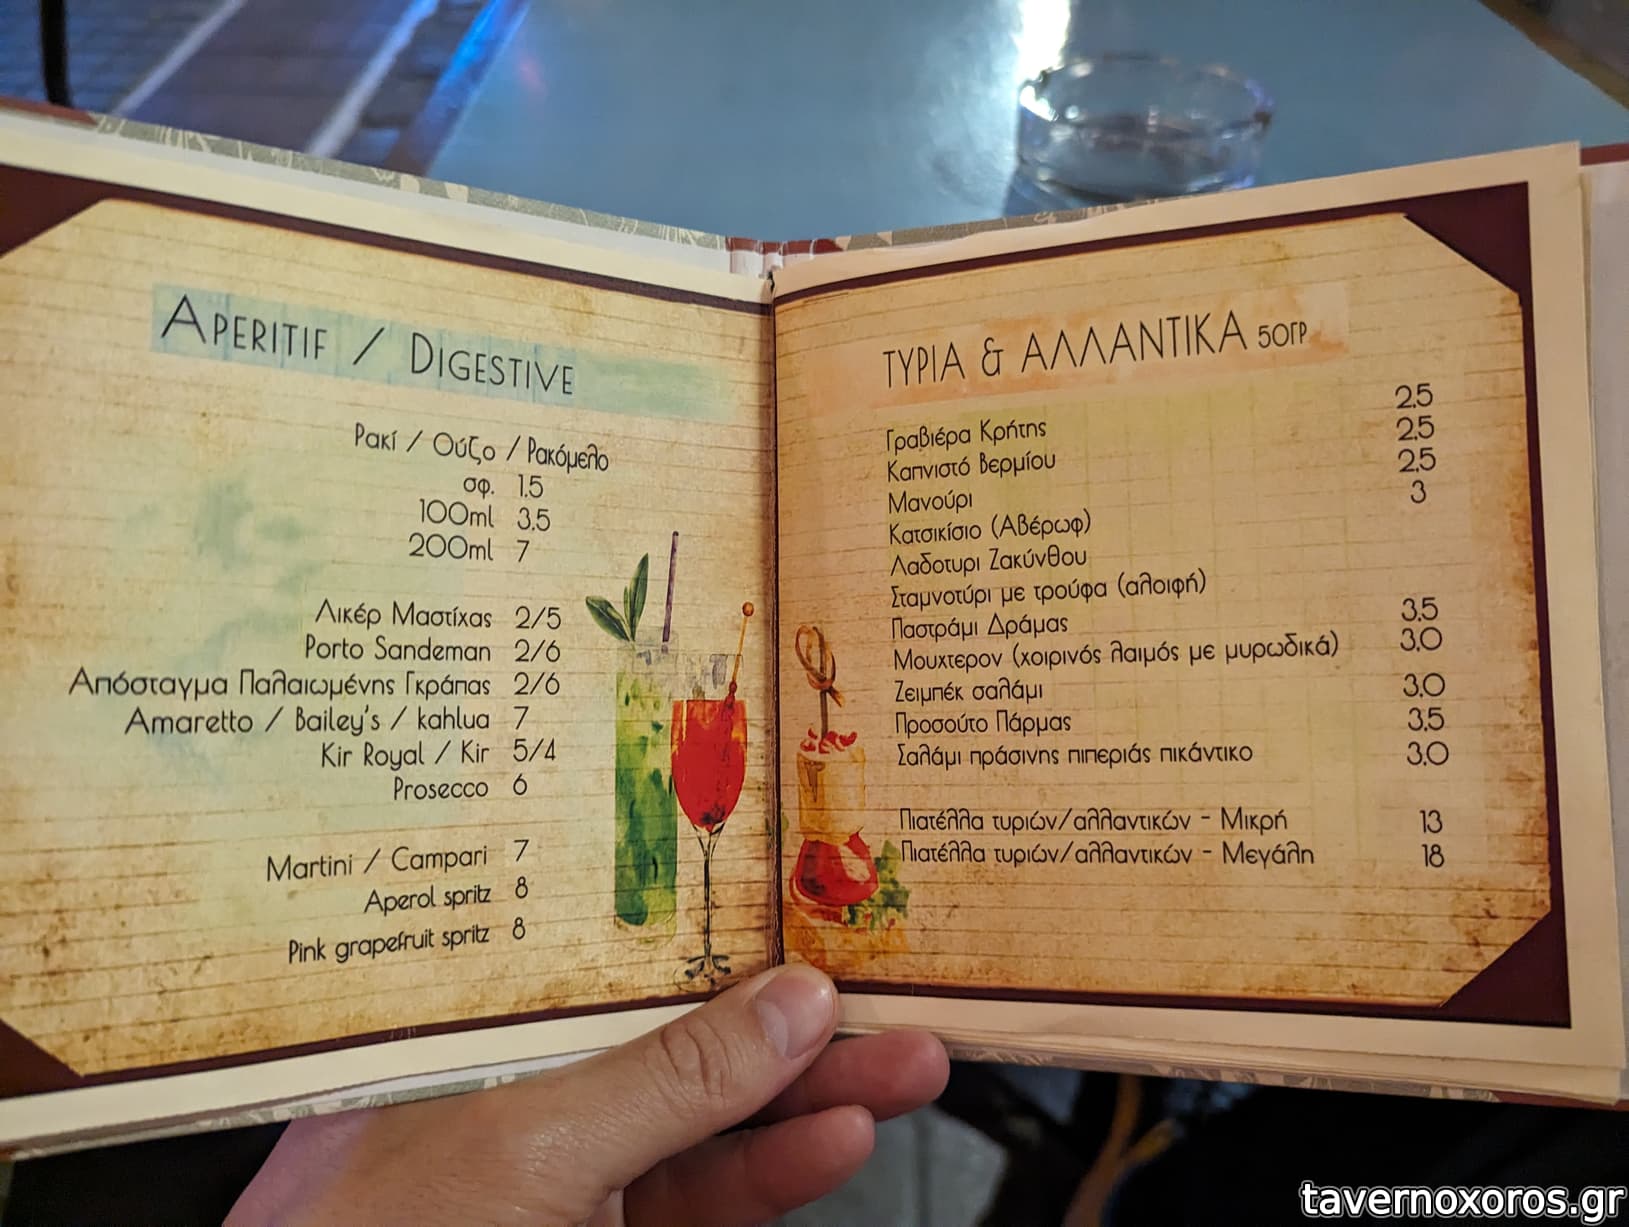 APERITIF / DIGESTIVE
Ρακί / Ούζο / Ρακόμελο
σφ. 1.5
100ml 3.5
200ml 7
Λικέρ Μαστίχας 2/5
Porto Sandeman 2/6
Απόσταγμα Παλαιωμένης Γκράπας 2/6
Amaretto / Bailey's / kahlua 7
Kir Royal / Kir 5/4
Prosecco 6
Martini / Campari 7
Aperol spritz 8
Pink grapefruit spritz 8
ΤΥΡΙΑ & ΑΛΛΑΝΤΙΚΑ 50ΓΡ
2.5
Γραβιέρα Κρήτης 2.5
Καπνιστό Βερμίου 2.5
Μανούρι 3
Κατσικίσιο (Αβέρωφ)
Λαδοτυρι Ζακύνθου
Σταμνοτύρι με τρούφα (αλοιφή)
Παστράμι Δράμας 3.5
Μουχτερον (χοιρινός λαιμός με μυρωδικά) 3.0
Ζειμπέκ σαλάμι 3.0
Προσούτο Πάρμας 3.5
Σαλάμι πράσινης πιπεριάς πικάντικο 3.0
Πιατέλλα τυριών/αλλαντικών - Μικρή 13
Πιατέλλα τυριών/αλλαντικών - Μεγάλη 18
tavernoxoros.gr